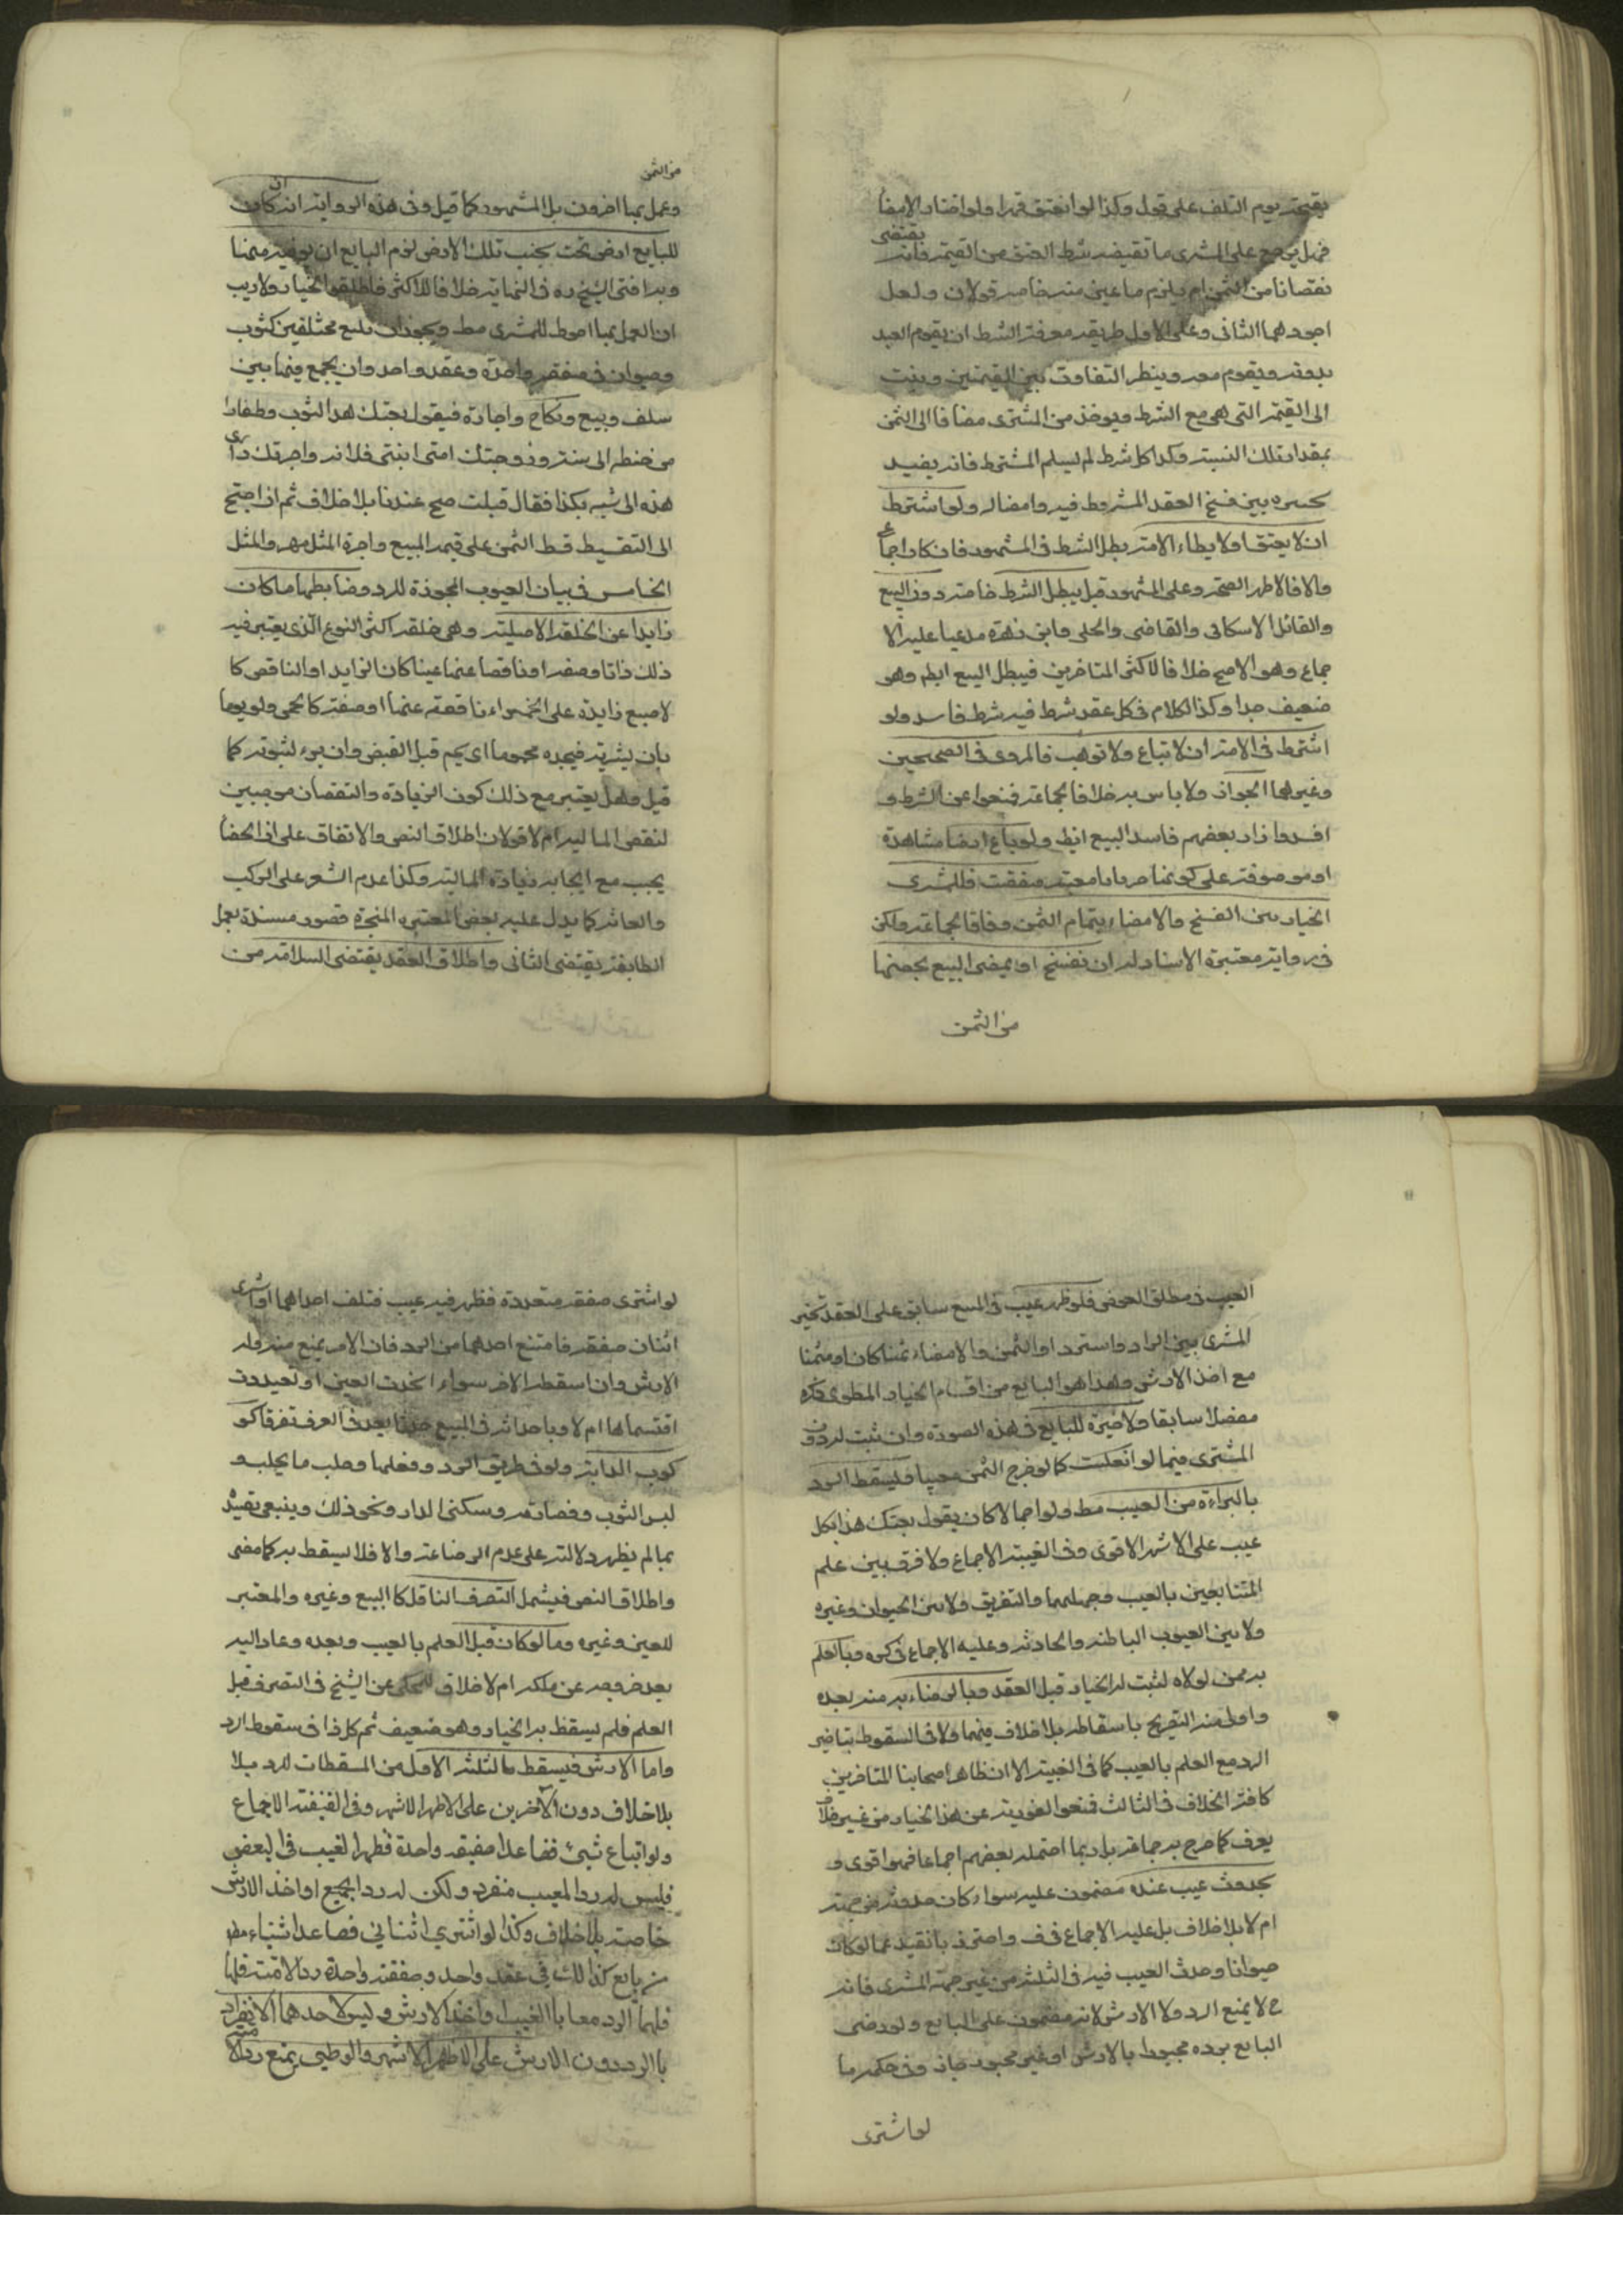 بقيمته يوم التلف على قول وكذا لو انعتق قهرا ولو اختار الامضا
فهل يرجع على المشترى ما تقيضه شرط العتق من القيمة فانه
يقتضى
نقصانا من الثمن ام يلزم ما عين منه خاصه قولان ولعل
اجودهما الثانى وعلى الاول طريقه معرفة الشرط ان يقوم العبد
بدونه ويقوم معه وينظر التفاوت بين القيمتين وينسب
الى القيمة التى هى مع الشرط ويوخذ من المشترى مضافا الى الثمن
بمقدار تلك النسبة وكذا كل شرط لم يسلم المشترط فانه يفيد
تخييره بين فسخ العقد المشروط فيه وامضاله ولو اشترط
ان لا يعتق او لا يطاء الامة بطل الشرط فى المشهور فان كان اجماع
والا فالاظهر الصحة وعلى المشهور قيل يبطل الشرط خاصة دون البيع
والقائل الاسكافى والقاضى والحلى وابن زهرة مدعيا عليه الا
جماع وهو الاصح خلافا لاكثر المتاخرين فيبطل البيع ايظم وهو
ضعيف جدا وكذا الكلام فى كل عقد شرط فيه شرط فاسد ولو
اشترط فى الامة ان لا تباع ولا توهب فالمروى فى الصحيحين
وغيرهما الجواز ولا باس به خلافا لجماعة فمنعوا عن الشرط و
افسدوا زاد بعضهم فاسد البيع ايظ ولو باع ارضا مشاهدة
او موصوفة على كونها جربانا معينه فنقصت فللمشترى
الخيار بين الفسخ والامضاء بتمام الثمن وفاقا لجماعة ولكن
فى رواية معتبرة الاسناد له ان تفسخ او يمضى البيع بحصتها
من الثمن
من الثمن
وعمل بها اخرون بل المشهور كما قيل وفى هذه الرواية انه ان كان
للبايع ارض تحت بجنب تلك الارض لزم البايع ان يوفيه منها
وبه افتى الشيخ ره فى النهاية خلافا للاكثر فاطلقوا الخيار ولا ريب
ان العمل بها احوط للمشترى مط ويجوز ان يبيع مختلفين كثوب
وحيوان فى صفقة واحدة وعقد واحد وان يجمع فيها بين
سلف وبيع ونكاح واجارة فيقول بعتك هذا الثوب وطغارا
من حنطة الى سنة وزوجتك امتى ابنتى فلانه واجرتك دارى
هذه الى شهر بكذا فقال قبلت صح عندنا بلا خلاف ثم ان احتج
الى التقسيط قسط الثمن على قيمة المبيع واجرة المثل مهر والمثل
الخامس فى بيان العيوب المجوزة للرد وضابطها ما كان
زايدا عن الخلقة الاصلية وهى خلقة اكثر النوع الذى يعتبر فيه
ذلك ذاتا وصفة او ناقصا عنها عينا كان الزايد او الناقص كا
لاصبع زايدة على الخمس او ناقصة عنها او صفة كالحمى ولو يوما
بان يشتريه فيجده محموما اى يحم قبل القبض وان برء لثبوته كما
قيل وهل يعتبر مع ذلك كون الزيادة والنقصان موجبين
لنقص المالية ام لا قولان اطلاق النص والاتفاق على ان الخصا
يجب مع ايجابه زيادة المالية وكذا عدم الشعر على الركب
والعانة كما يدل عليه بعض المعتبرة المنجبرة قصور مسندة بعمل
الطايفة يقتضى الثانى واطلاق العقد يقتضى السلامة من
العيب فى مطلق العوض فلو ظهر عيب فى المبيع سابق على العقد تخير
المشترى بين الراد واسترد او الثمن والامضاء ثمنا كان او مثمنا
مع اخذ الارش وهذا هو البائع من اقسام الخيار المطوى ذكره
مفصلا سابقا ولا خيرة للبايع فى هذه الصورة وان ثبت له دون
المشترى فيما لو انعكست كما لو خرج الثمن معيبا ويسقط الرد
بالبراءة من العيب مط ولو اجمالا كان يقول بعتك هذا بكل
عيب على الاشهر الاقوى وفى الغيبة الاجماع ولا فرق بين علم
المتبايعين بالعيب وجهلهما والتفريق ولا بين الحيوان وغيره
ولا بين العيوب الباطنه والحادثه وعليه الاجماع فى كره وبالعلم
به ممن لولاه لثبت له الخيار قبل العقد وبالرضاء به منه بعده
واولى منه التصريح باسقاطه بلا خلاف فيهما ولا فى السقوط بتاخير
الرد مع العلم بالعيب كما فى الغيبة الا ان ظاهر اصحابنا المتاخرين
كافة الخلاف فى الثالث فنعوا الفورية عن هذا الخيار من غير خلاف
يعرف كما صرح به جماعة بل ربما احتمله بعضهم اجماعا فهو اقوى و
بحدوث عيب عنده مضمون عليه سواء كان حدوثه من جهته
ام لا بلا خلاف بل عليه الاجماع فى ف واحترز بالتقييد عما لو كان
حيوانا وحدث العيب فيه فى الثلثة من غير جهة المشترى فانه
ح لا يمنع الرد ولا الارش لانه مضمون على البايع ولو رضى
البايع برده مجبورا بالارش او غير مجبور جاز وفى حكمه ما
لو اشترى
لو اشترى صفقة متعددة فظهر فيه عيب فتلف احداهما او اشترى
اثنان صفقة فامتنع احدهما من الرد فان الاخر يمنع منه وله
الارش وان اسقطه الاخر سواء اتحدت العين او تعددت
اقتسماها ام لا وباحداثه فى المبيع حدثا يعد فى العرف تصرفا كر
كوب الدابة ولو فى طريق الرد وفعلها وحلب ما يحلب و
لبس الثوب وقصارته وسكنى الدار ونحو ذلك وينبغى تقييد
بما لم يظهر دلالته على عدم الرضا عنه والا فلا يسقط به كما مضى
واطلاق النص فيشمل التصرف الناقل كا البيع وغيره والمعتبر
للعين وغيره وما لو كان قبل العلم بالعيب وبعده وعاد اليه
بعد خروجه عن ملكه ام لا خلاف للمحكى عن الشيخ فى التصرف قبل
العلم فلم يسقط به الخيار وهو ضعيف ثم كل ذا فى سقوط الرد
واما الارش فيسقط بالثلثة الاول من المسقطات للرد بلا
بلا خلاف دون الآخرين على الاظهر الاشهر وفى الاجماع
ولو ابتاع شيئ فصاعدا صفيقه واحدة فظهر العيب فى البعض
فليس له رد المعيب منفرد ولكن له رد الجميع او اخذ الارش
خاصة بلا خلاف وكذا لو اشترى اثنانى فصاعدا شيئاء مط
من بايع كذا لك فى عقد واحد وصفقة واحدة
فلهما الرد معا با العيب واخذ الارش وليس لاحدهما الانفراد
با الرد دون الارش على الاظهر الاشهر والوطيى يمنع رد الا